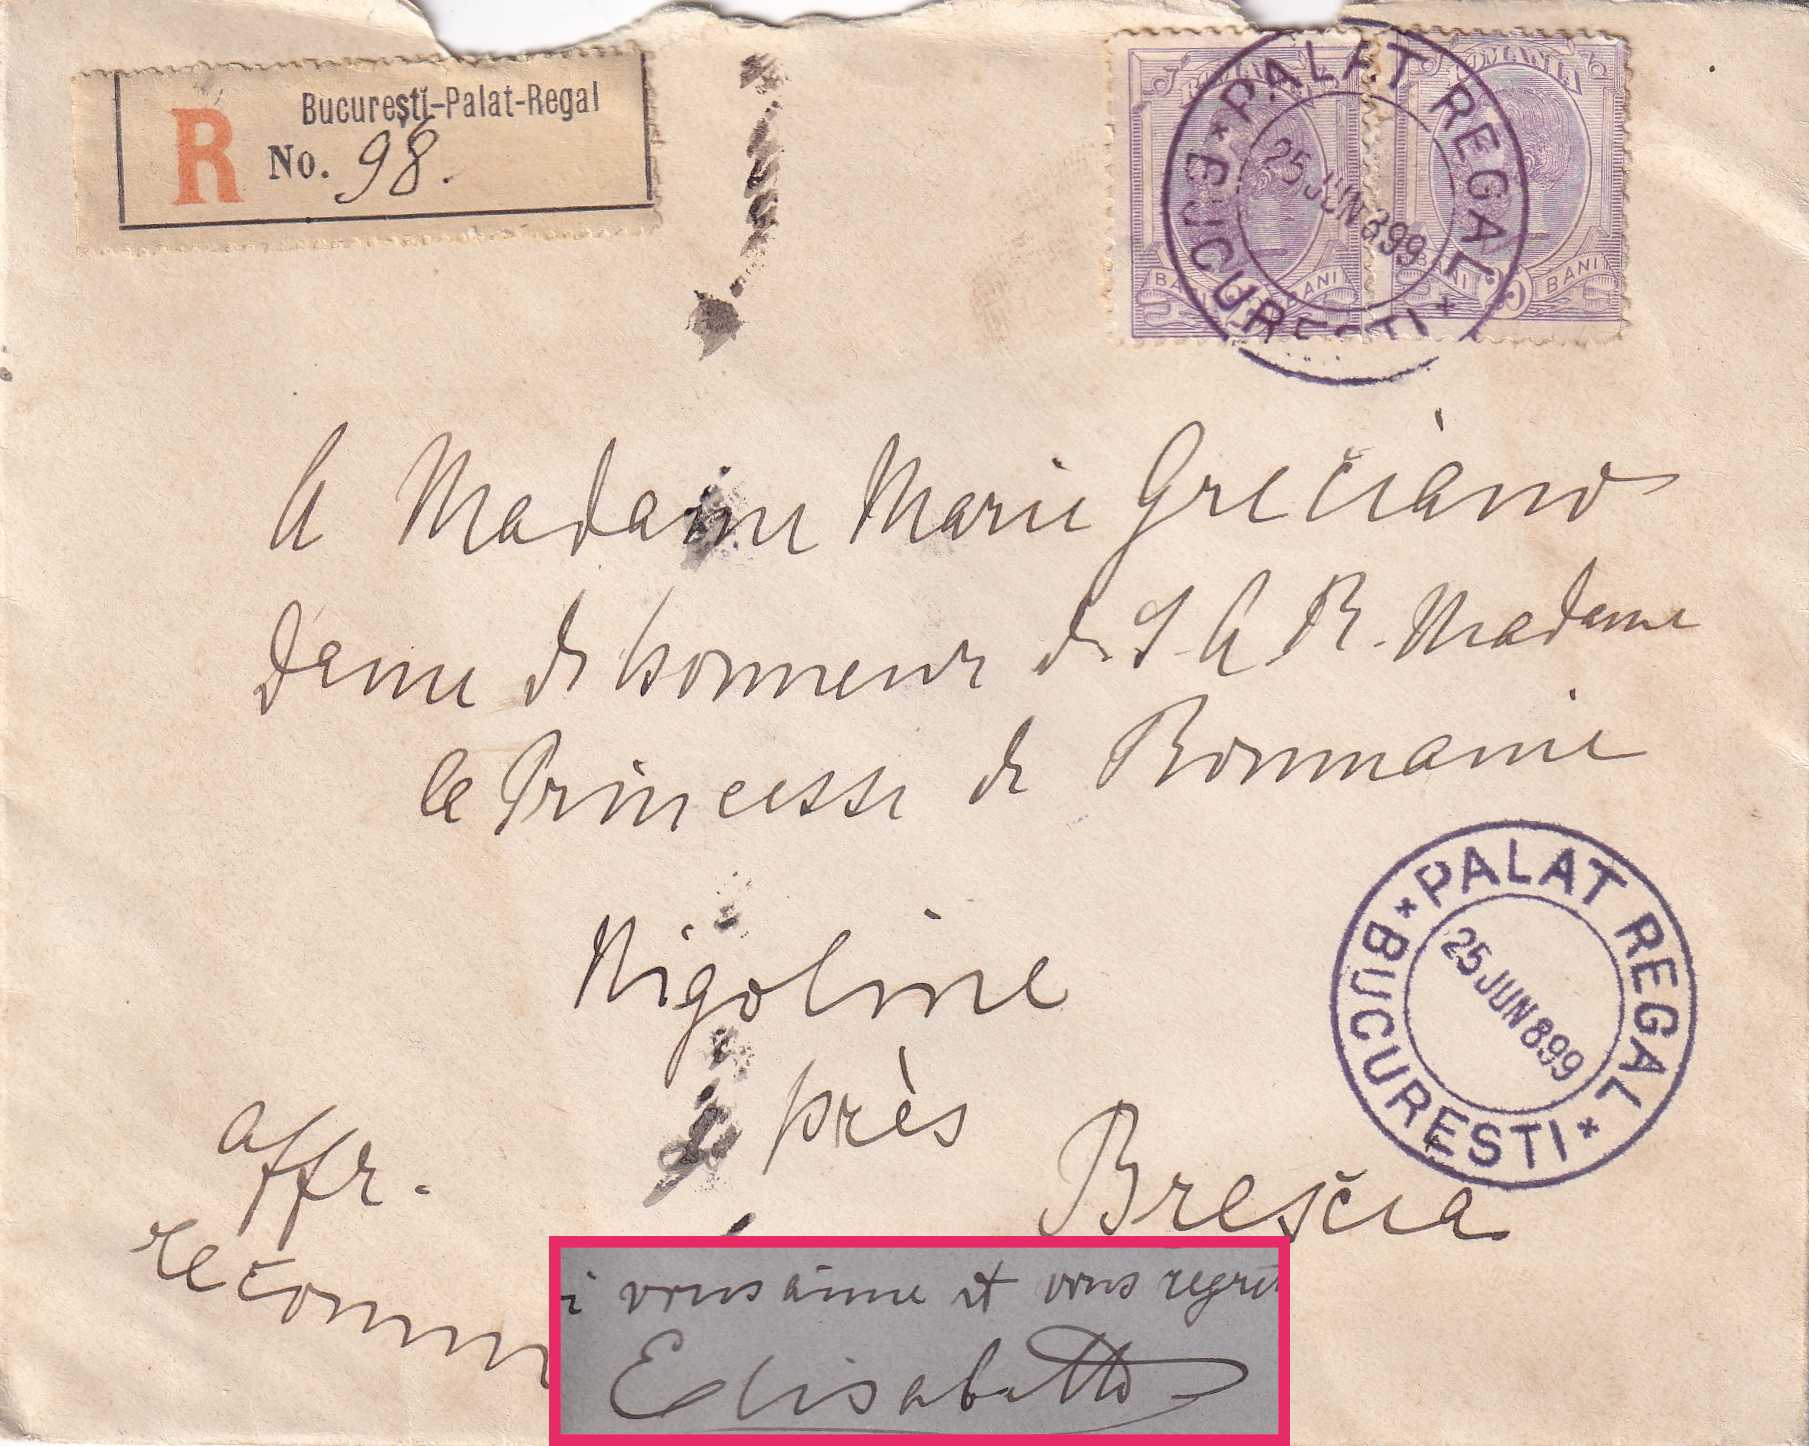 Bucureştĭ-Palat-Regal
R No. 98.
ROMANIA ROMANIA
BANI BANI BANI 25 BANI
* PALAT REGAL * BUCURESTI
25 JUN 899
A Madame Marie Greciano
Dame de honneur de S. A. R. Madame
la Princesse de Roumanie
Nigoline
près
Brescia
affr.
recomm
* PALAT REGAL * BUCURESTI
25 JUN 899
i vous aime et vous regret
Elisabetta